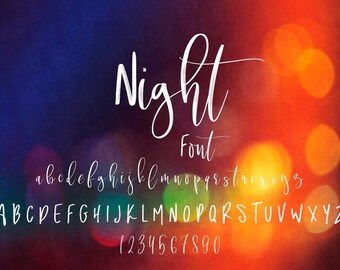 Night
Font
abcdefghijklmnopqrstuvwxyz
ABCDEFGHIJKLMNOPQRSTUVWXYZ
1234567890